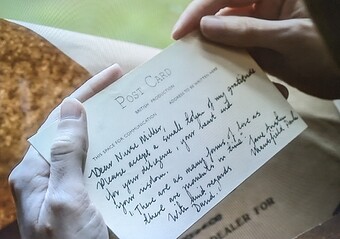 POST CARD
BRITISH PRODUCTION
THIS SPACE FOR COMMUNICATION
ADDRESS TO BE WRITTEN HERE
Dear Nurse Miller,
Please accept a small token of my gratitude
for your diligence, your heart and
your wisdom.
"There are as many forms of love as
there are moments in time"
Jane Austen
Mansfield Park
With kind regards
David.
DEALER FOR